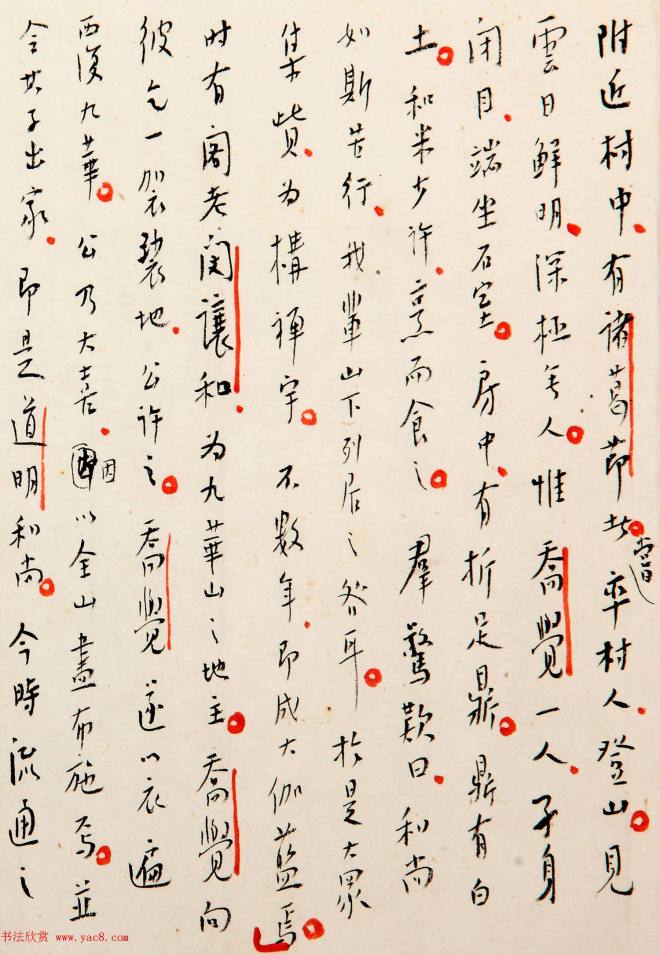 附近村中、有諸葛節者。嘗率村人、登山。見
雲日鮮明、深極無人。惟喬覺一人、孑身
閉目、端坐石室。房中、有折足鼎。鼎有白
土。和米少許、烹而食之。羣驚歎曰、和尚
如斯苦行、我輩山下列居之咎耳。於是大眾
集貲、為構禪宇。不數年、即成大伽藍焉。
时有閣老閔讓和、為九華山之地主。喬覺向
彼乞一袈裟地、公許之。喬覺遂以衣遍
覆九華。公乃大喜、因以全山盡布施焉。並
令其子出家、即是道明和尚。今時流通之
书法欣赏 www.yac8.com